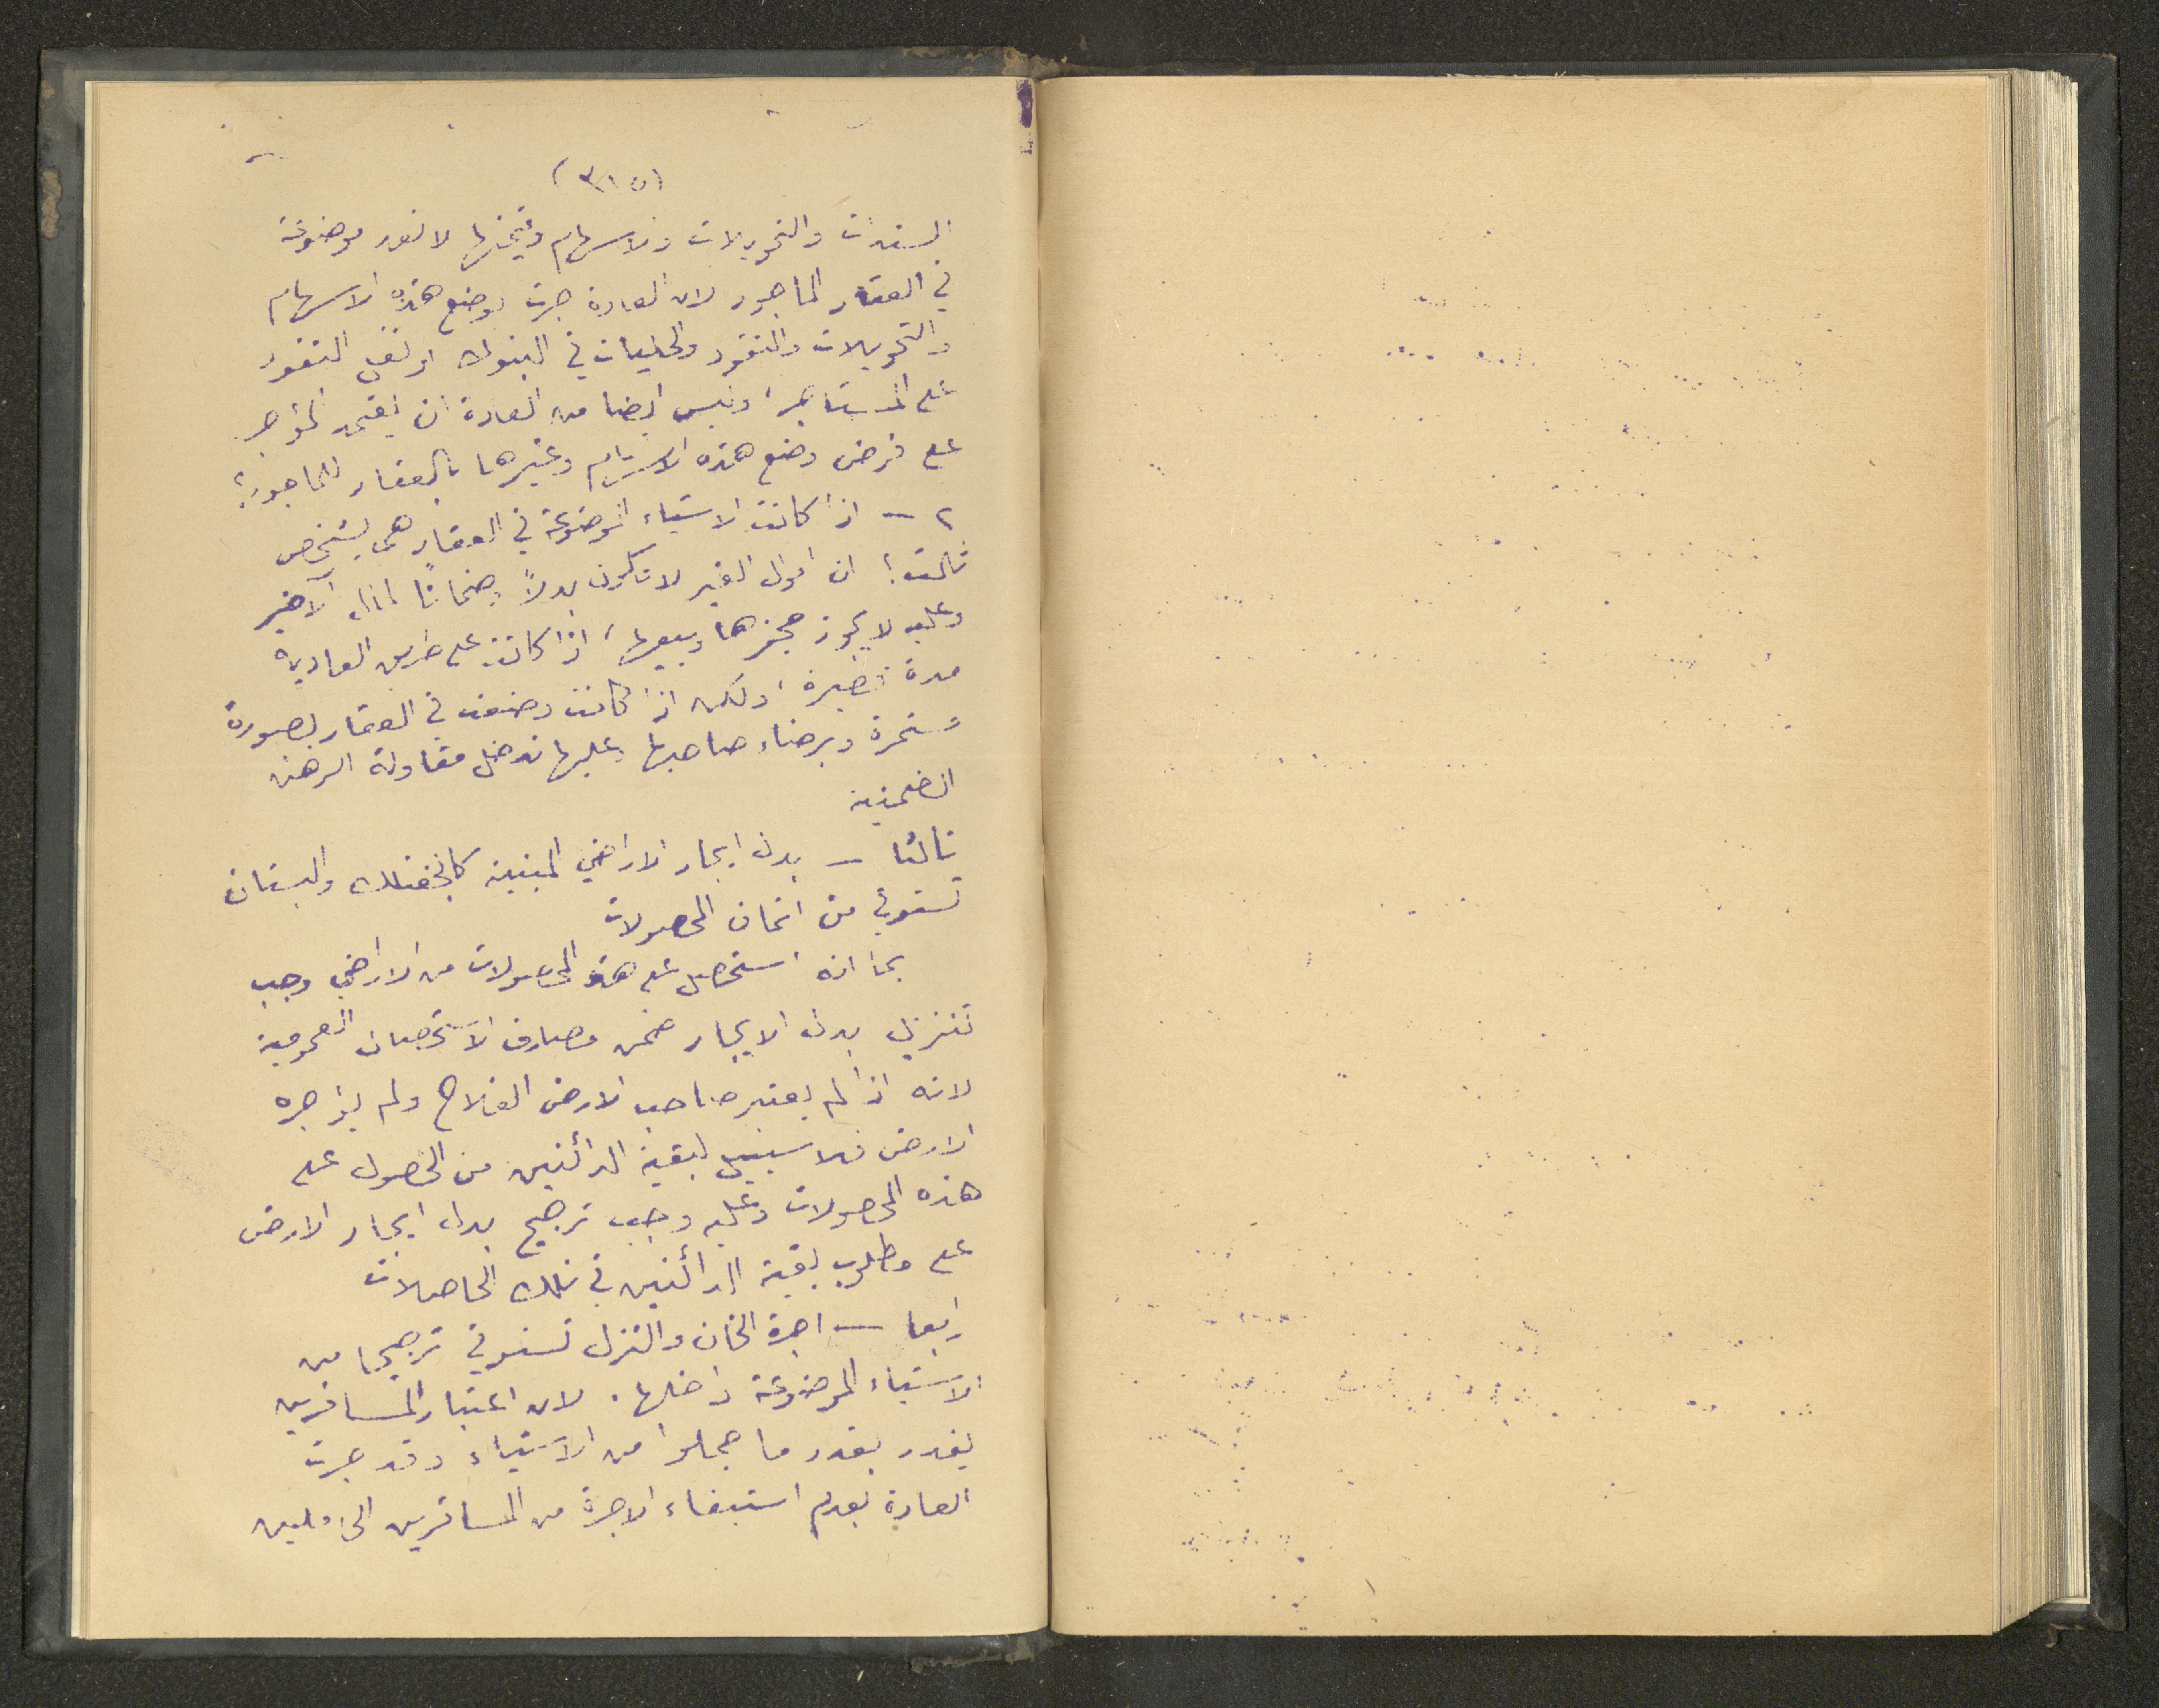 (٣١٥)
السندات والتحويلات والاسهام وقيمتها لا تعد موضوعة
في العقار المأجور لان العادة جرت بوضع هذه الاسهام
والتحويلات والنقود والحليات في البنوك او النقود
على المستأجر، وليس ايضا من العادة ان يعتمد المؤجر
على فرض وضع هذه الاسهام وغيرها بالعقار المأجور؛
٢ — اذا كانت الاشياء الموضوعة في العقار هي لشخص
ثالث؛ ان اموال الغير لا تكون بدلاً وضمانًا لمال الآخر
وعليه لا يجوز حجزها وبيعها، اذا كانت على طريق العارية
مدة قصيرة، ولكن اذا كانت وضعت في العقار بصورة
مستمرة وبرضاء صاحبها وعليها تدخل مقاولة الرهن
الضمنية
ثالثا — بدل ايجار الاراضي المبنية كالجفتلك والبستان
تستوفى من اثمان المحصولات
بما انه استحصل على هذه المحصولات من الاراضي وجب
تنزيل بدل الايجار ضمن مصارف الاستحصال العمومية
لانه اذا لم يعتبر صاحب الارض الفلاح ولم يؤجره
الارض فلا سبيل لبقية الدائنين من الحصول على
هذه المحصولات وعليه وجب ترجيح بدل ايجار الارض
على مطلوب بقية الدائنين في تلك الحاصلات
رابعا — اجرة الخان والنزل تستوفى ترجيحا من
الاشياء الموضوعة داخلها. لان اعتبار المسافرين
يقدر بقدر ما حملوا من الاشياء وقد جرت
العادة بعدم استيفاء الاجرة من المسافرين الحاملين